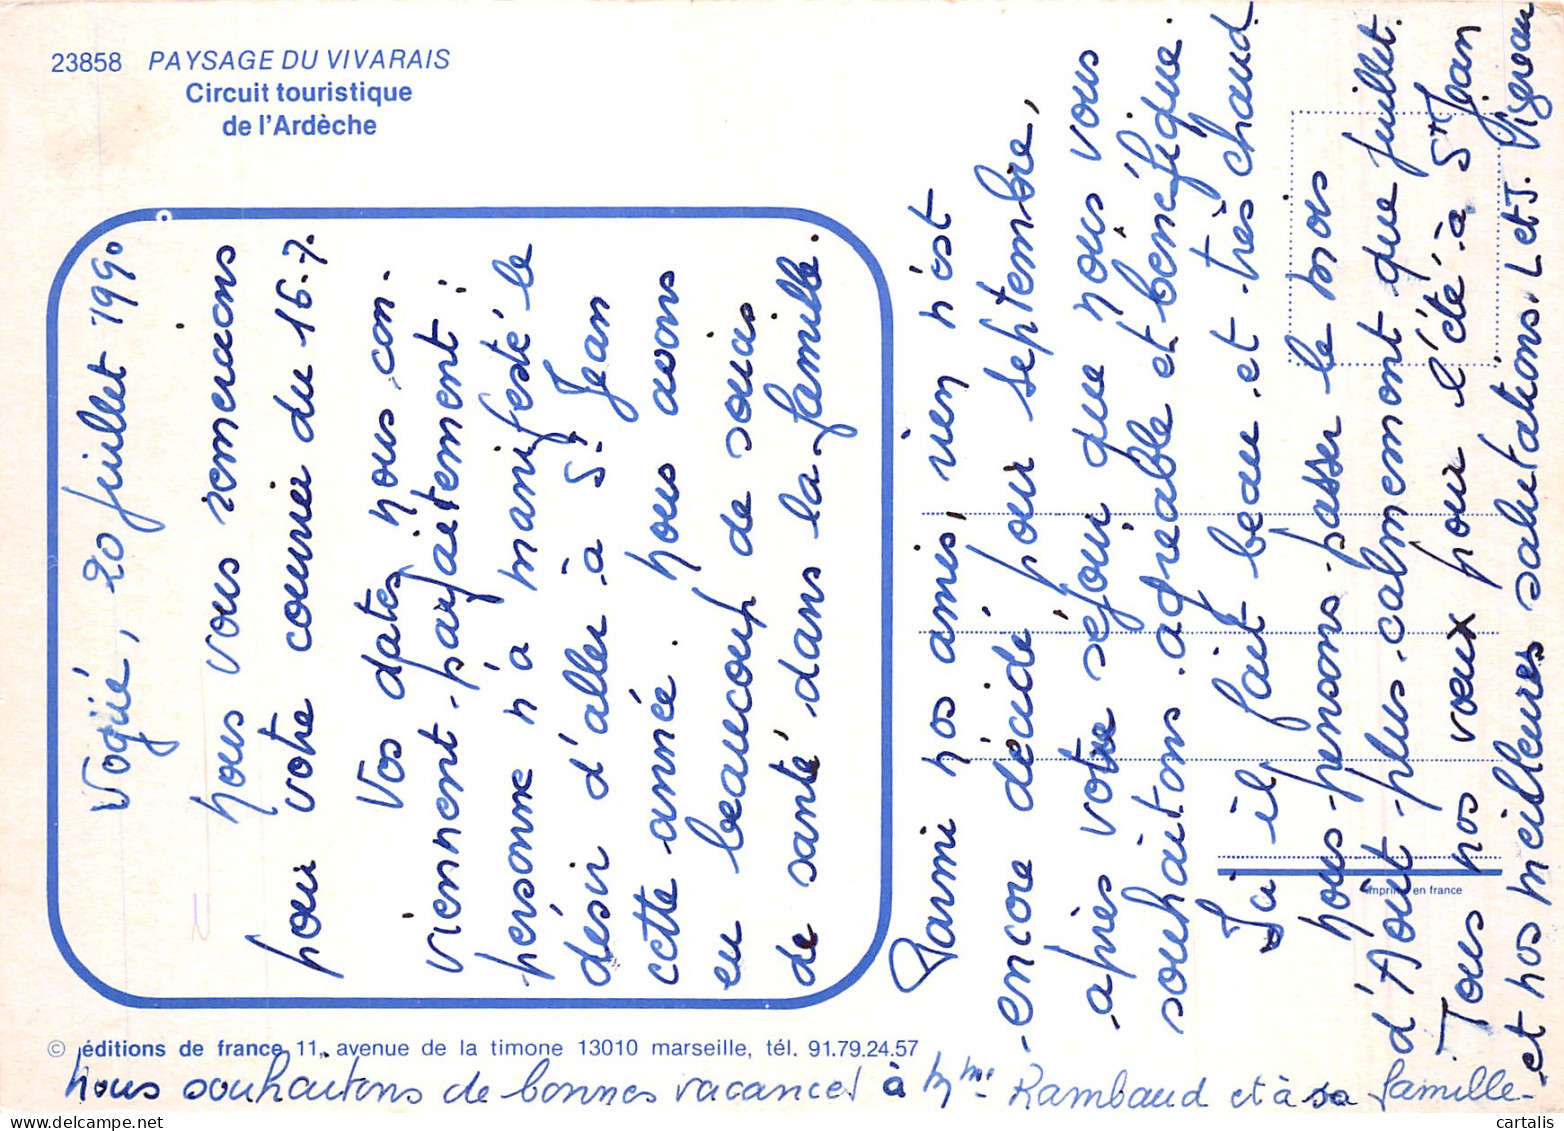 23858 PAYSAGE DU VIVARAIS
Circuit touristique
de l'Ardèche
Vogüé, 20 juillet 1990
Nous vous remercions
pour votre courrier du 16.7.
Vos dates nous con-
viennent parfaitement :
personne n'a manifesté le
désir d'aller à St Jean
cette année. Nous avons
eu beaucoup de soucis
de santé dans la famille.
Parmi nos amis, rien n'est
encore décidé pour septembre,
après votre séjour que nous vous
souhaitons agréable et bénéfique.
Ici il fait beau et très chaud
Nous pensons passer le mois
d'Août plus calmement que juillet.
Tous nos vœux pour l'été à St Jean
et nos meilleures salutations. L et J. Vigneau
Nous souhaitons de bonnes vacances à Mme Rambaud et à sa famille-
imprimé en france
© éditions de france 11, avenue de la timone 13010 marseille, tél. 91.79.24.57
cartalis